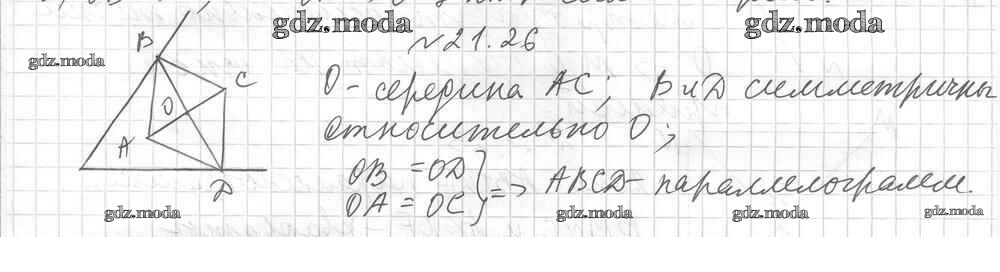 gdz.moda
gdz.moda
gdz.moda
№21.26
B
C
O
A
D
O - середина AC; B и D симметричны
относительно O;
OB = OD
OA = OC
} => ABCD - параллелограмм.
gdz.moda
gdz.moda
gdz.moda
gdz.moda